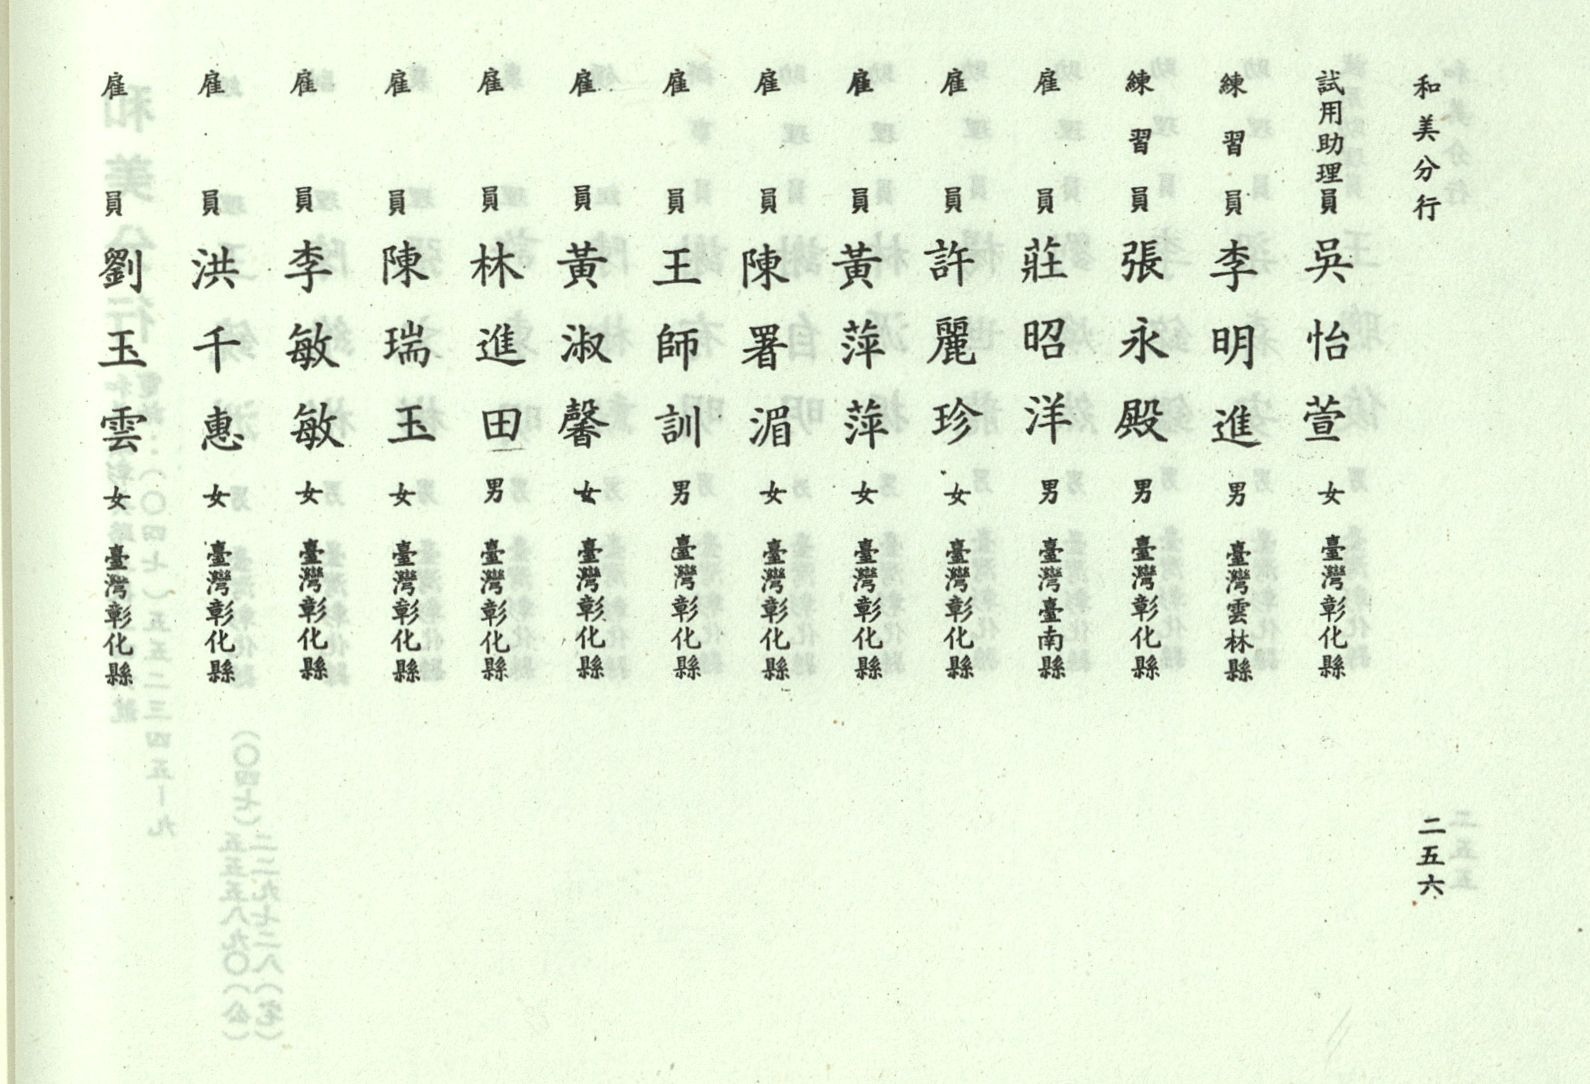 和美分行
二五六
試用助理員 吳怡萱 女 臺灣彰化縣
練習員 李明進 男 臺灣雲林縣
練習員 張永殿 男 臺灣彰化縣
雇員 莊昭洋 男 臺灣臺南縣
雇員 許麗珍 女 臺灣彰化縣
雇員 黃萍萍 女 臺灣彰化縣
雇員 陳署湄 女 臺灣彰化縣
雇員 王師訓 男 臺灣彰化縣
雇員 黃淑馨 女 臺灣彰化縣
雇員 林進田 男 臺灣彰化縣
雇員 陳瑞玉 女 臺灣彰化縣
雇員 李敏敏 女 臺灣彰化縣
雇員 洪千惠 女 臺灣彰化縣
雇員 劉玉雲 女 臺灣彰化縣